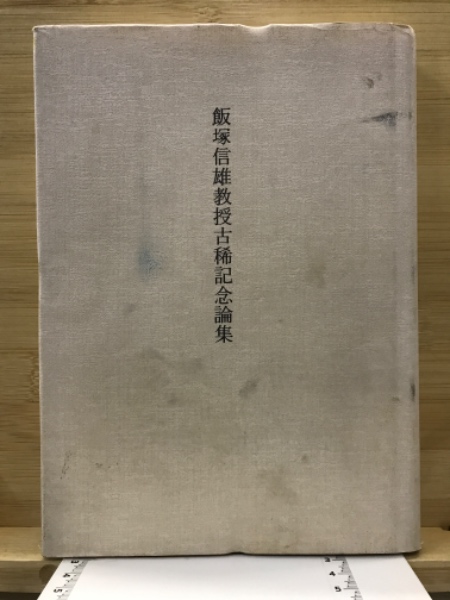 飯塚信雄教授古稀記念論集
3
5